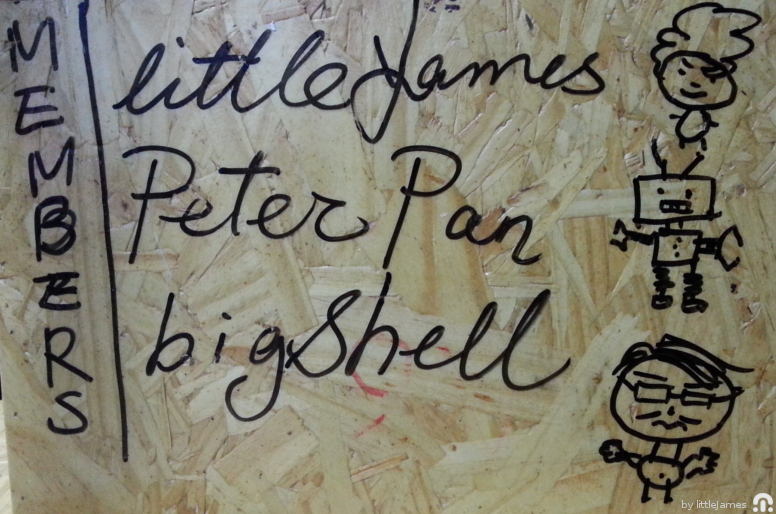 MEMBERS
little James
Peter Pan
bigShell
by littleJames